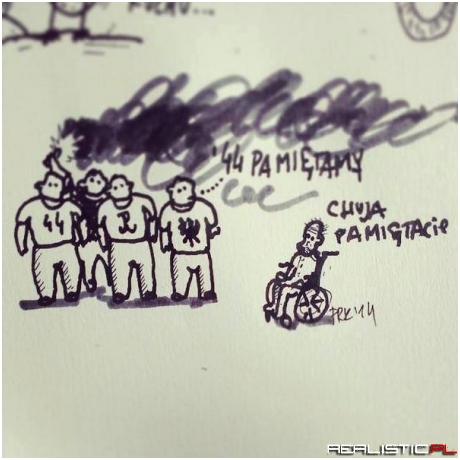 '44 PAMIĘTAMY
CHUJA
PAMIĘTACIE
44
PRK'14
REALISTIC.PL